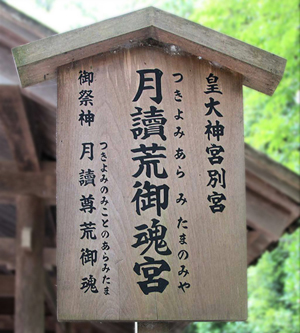 皇大神宮別宮
月讀荒御魂宮
つきよみあらみたまのみや
御祭神 月讀尊荒御魂
つきよみのみことのあらみたま